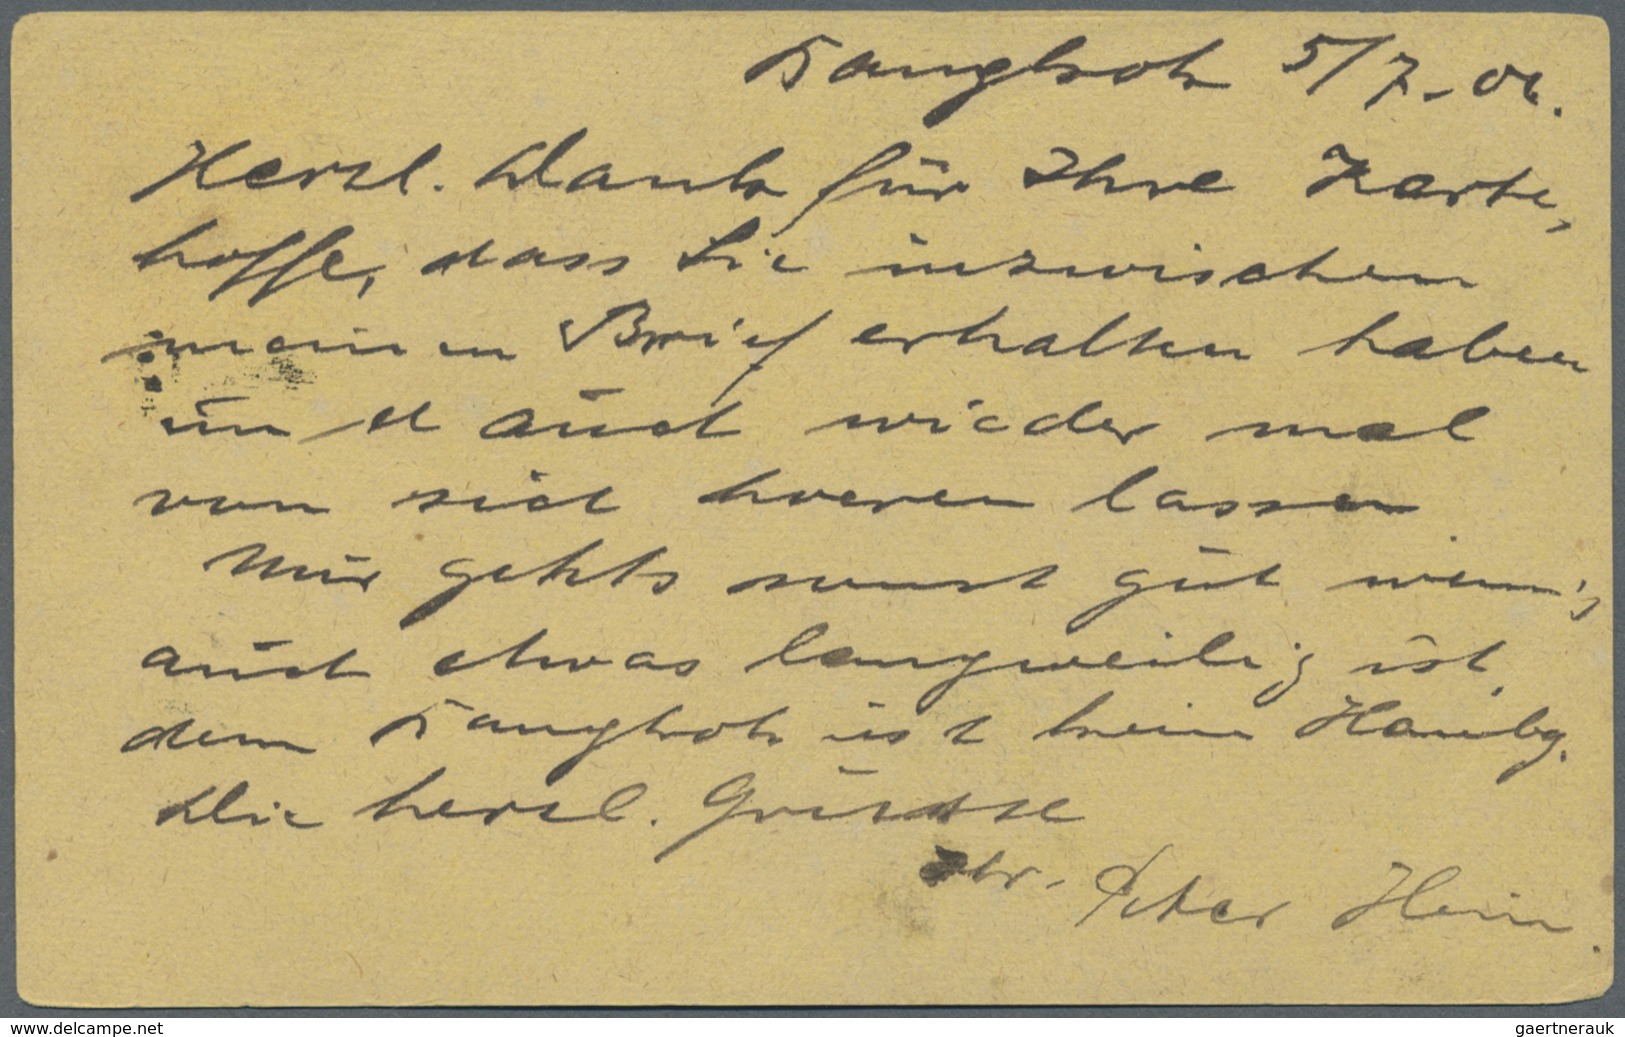 Bangkok 5/7-06.
Herzl. Dank für Ihre Karte,
hoffe, dass Sie inzwischen
meinen Brief erhalten haben
und auch wieder mal
von sich hoeren lassen
Mir gehts sonst gut wenns
auch etwas langweilig ist,
denn Bangkok ist kein Hambg.
Die herzl. Grüsse
Ihr. Peter Hein.
www.delcampe.net
gaertnerauk